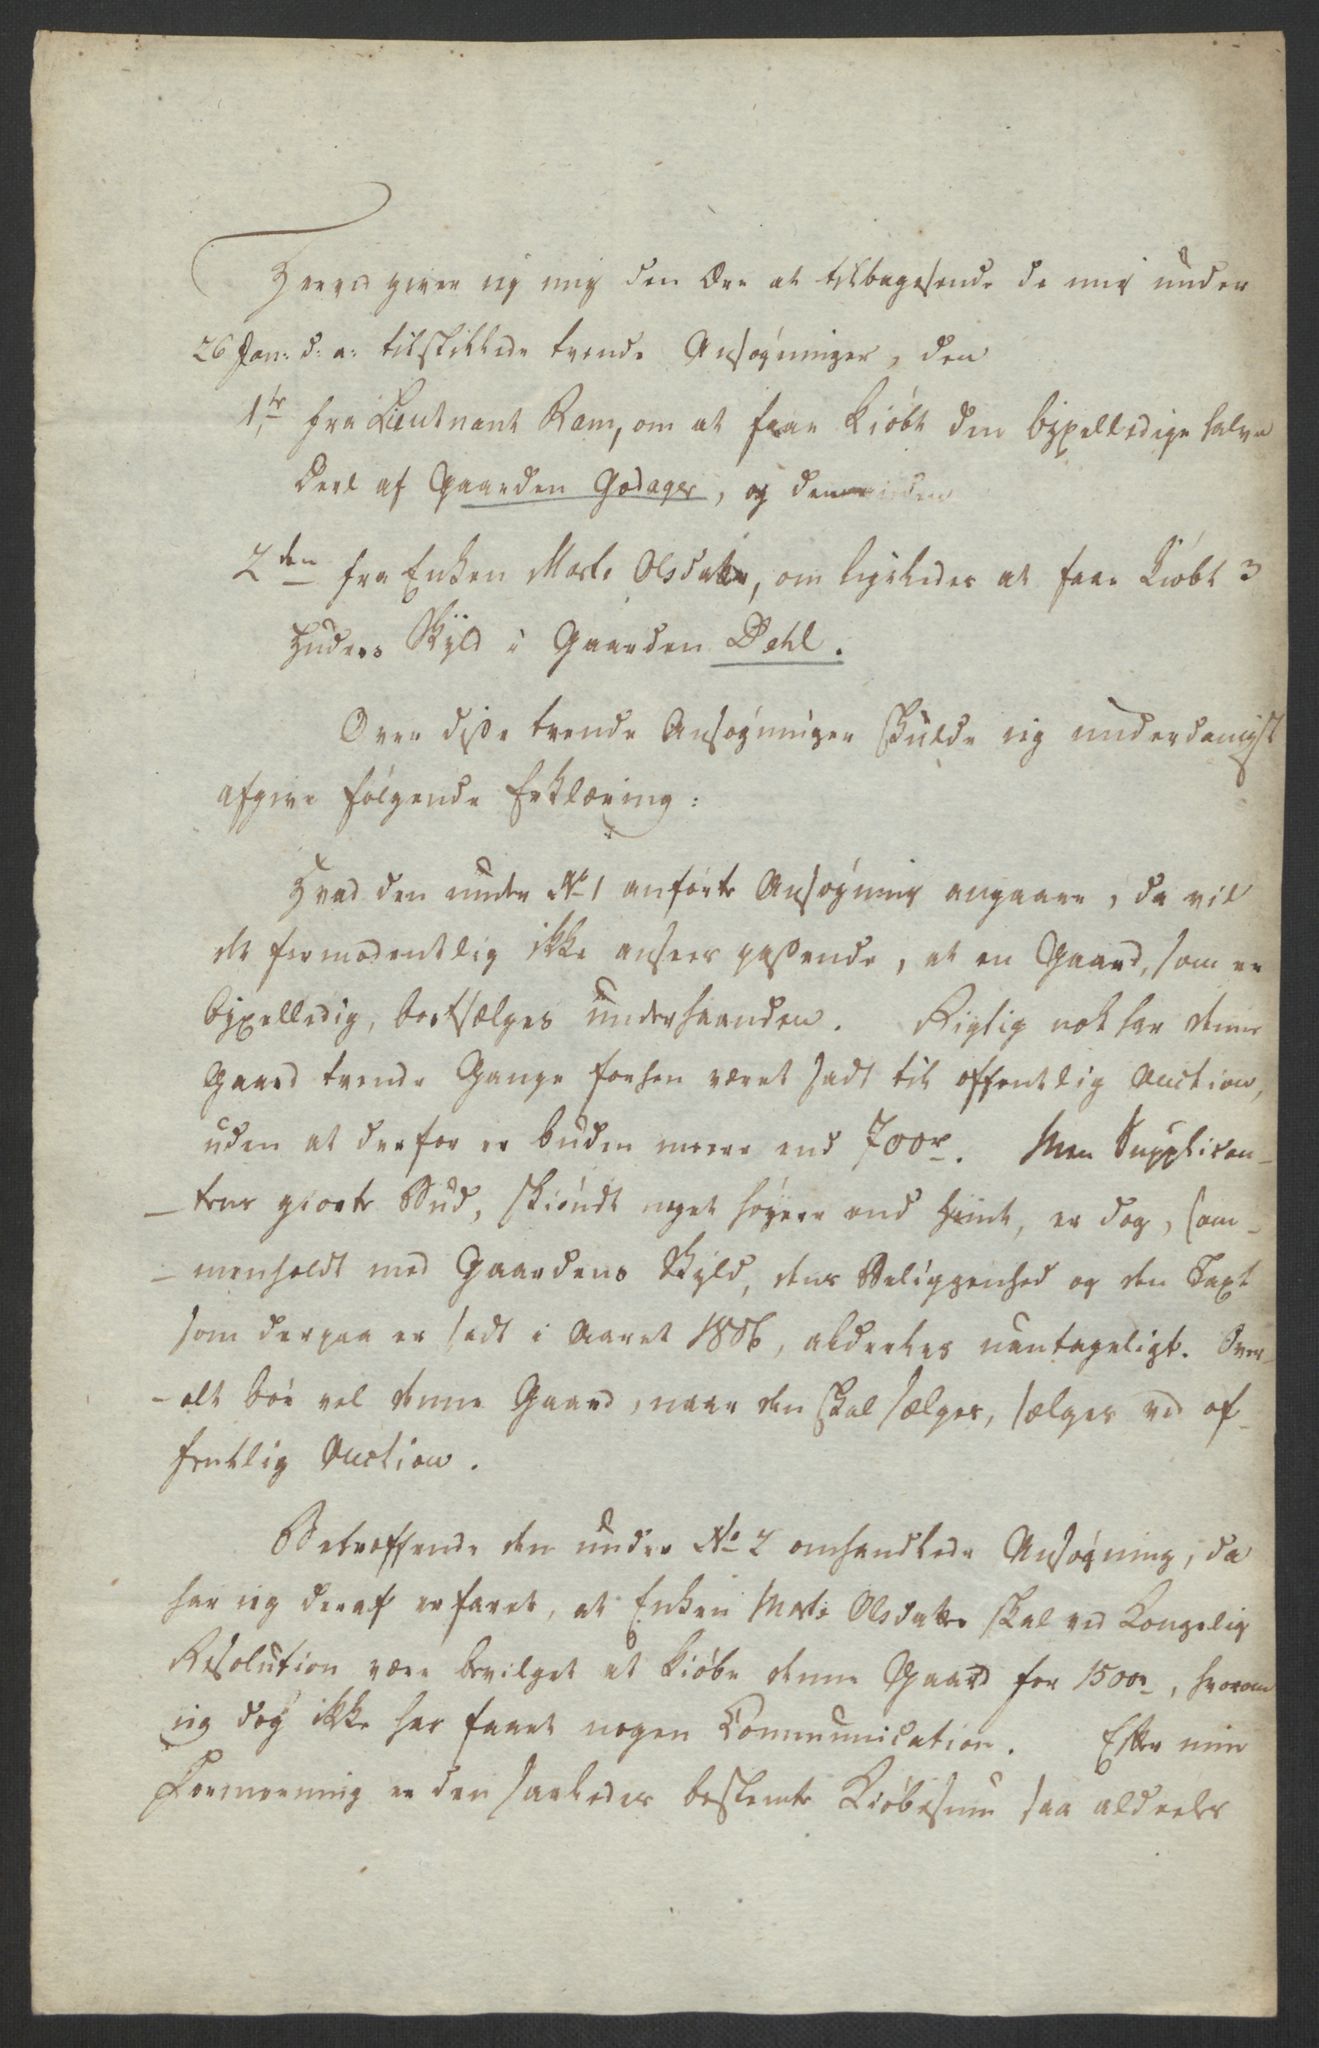 Herved giver jeg mig den Ære at tilbagesende de mig under
26 Jan: d: a: tilskikkede tvende Ansøgninger, den
1ste fra Lieutnant Ram, om at faae kiøbt den bexelledige halve
Deel af Gaarden Godager, og den
2den fra Enken Marte Olsdatter, om ligeledes at faae kiøbt 3
Huders Skyld i Gaarden Dehl.
Over disse tvende Ansøgninger skulde jeg underdanigst
afgive følgende Erklæring:
Hvad den under No 1 anførte Ansøgning angaaer, da vil
det formodentlig ikke ansees passende, at en Gaard, som er
bexelledig, bortsælges underhaanden. Rigtig nok har denne
Gaard tvende Gange forhen været sadt til offentlig Auction,
uden at derfor er buden meere end 700r. Men Supplican-
-tens giorte Bud, skiøndt noget høyere end hiint, er dog, sam-
-menholdt med Gaardens Skyld, dens Beliggenhed og den Taxt
som derpaa er sadt i Aaret 1806, aldeeles uantageligt. Over-
-alt bør vel denne Gaard, naar den skal sælges, sælges ved of-
fentlig Auction.
Betræffende den under No 2 omhandlede Ansøgning, da
har jeg deraf erfaret, at Enken Marte Olsdatter skal ved Kongelig
Resolution være bevilget at kiøbe denne Gaard for 1500r, hvorom
jeg dog ikke har faaet nogen Communication. Efter min
Formeening er den saaledes bestemte Kiøbesum saa aldeeles